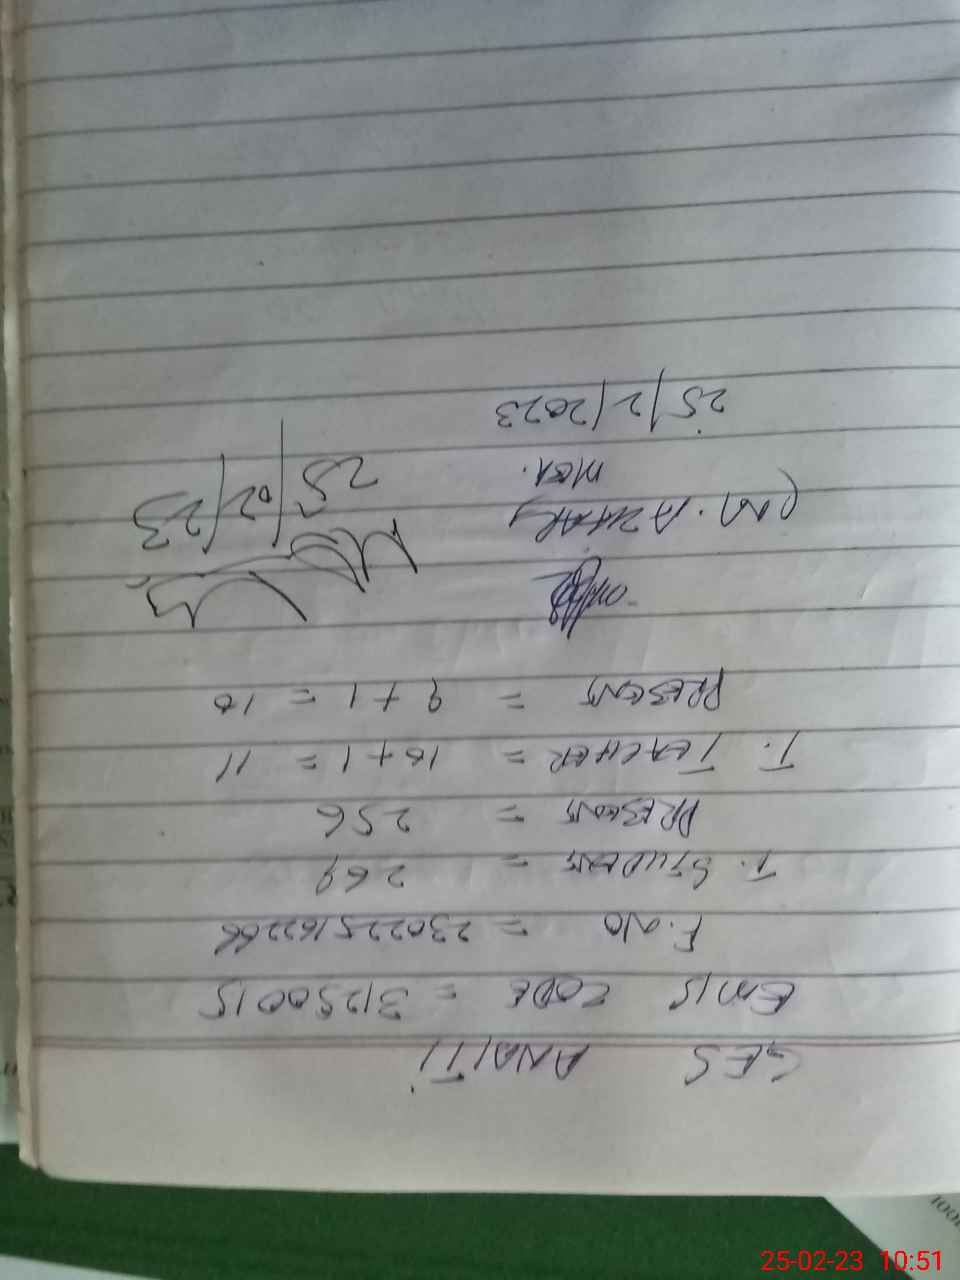 GES ANAITI
EMIS CODE = 31250015
F. NO = 230225162266
T. STUDENT = 269
PRESENT = 256
T. TEACHER = 10+1 = 11
PRESENT = 9+1 = 10
(M. AZHAR)
MEA.
25/2/2023
25/02/23
25-02-23 10:51